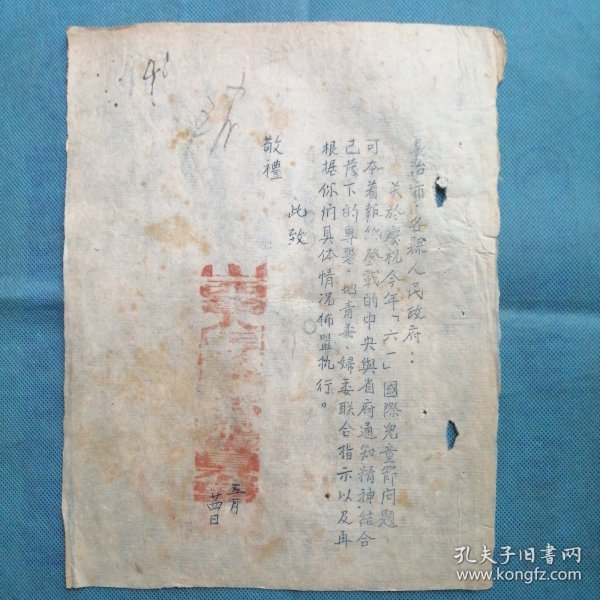 長治市、各縣人民政府：
关於慶祝今年「六一」國際兒童節问題
可本着報纸登載的中央與省府通知精神，結合
已發下的專署、地青委、婦委联合指示以及再
根据你们具体情况佈置执行。
此致
敬禮
五月
廿四日
孔夫子旧書网
www.kongfz.com